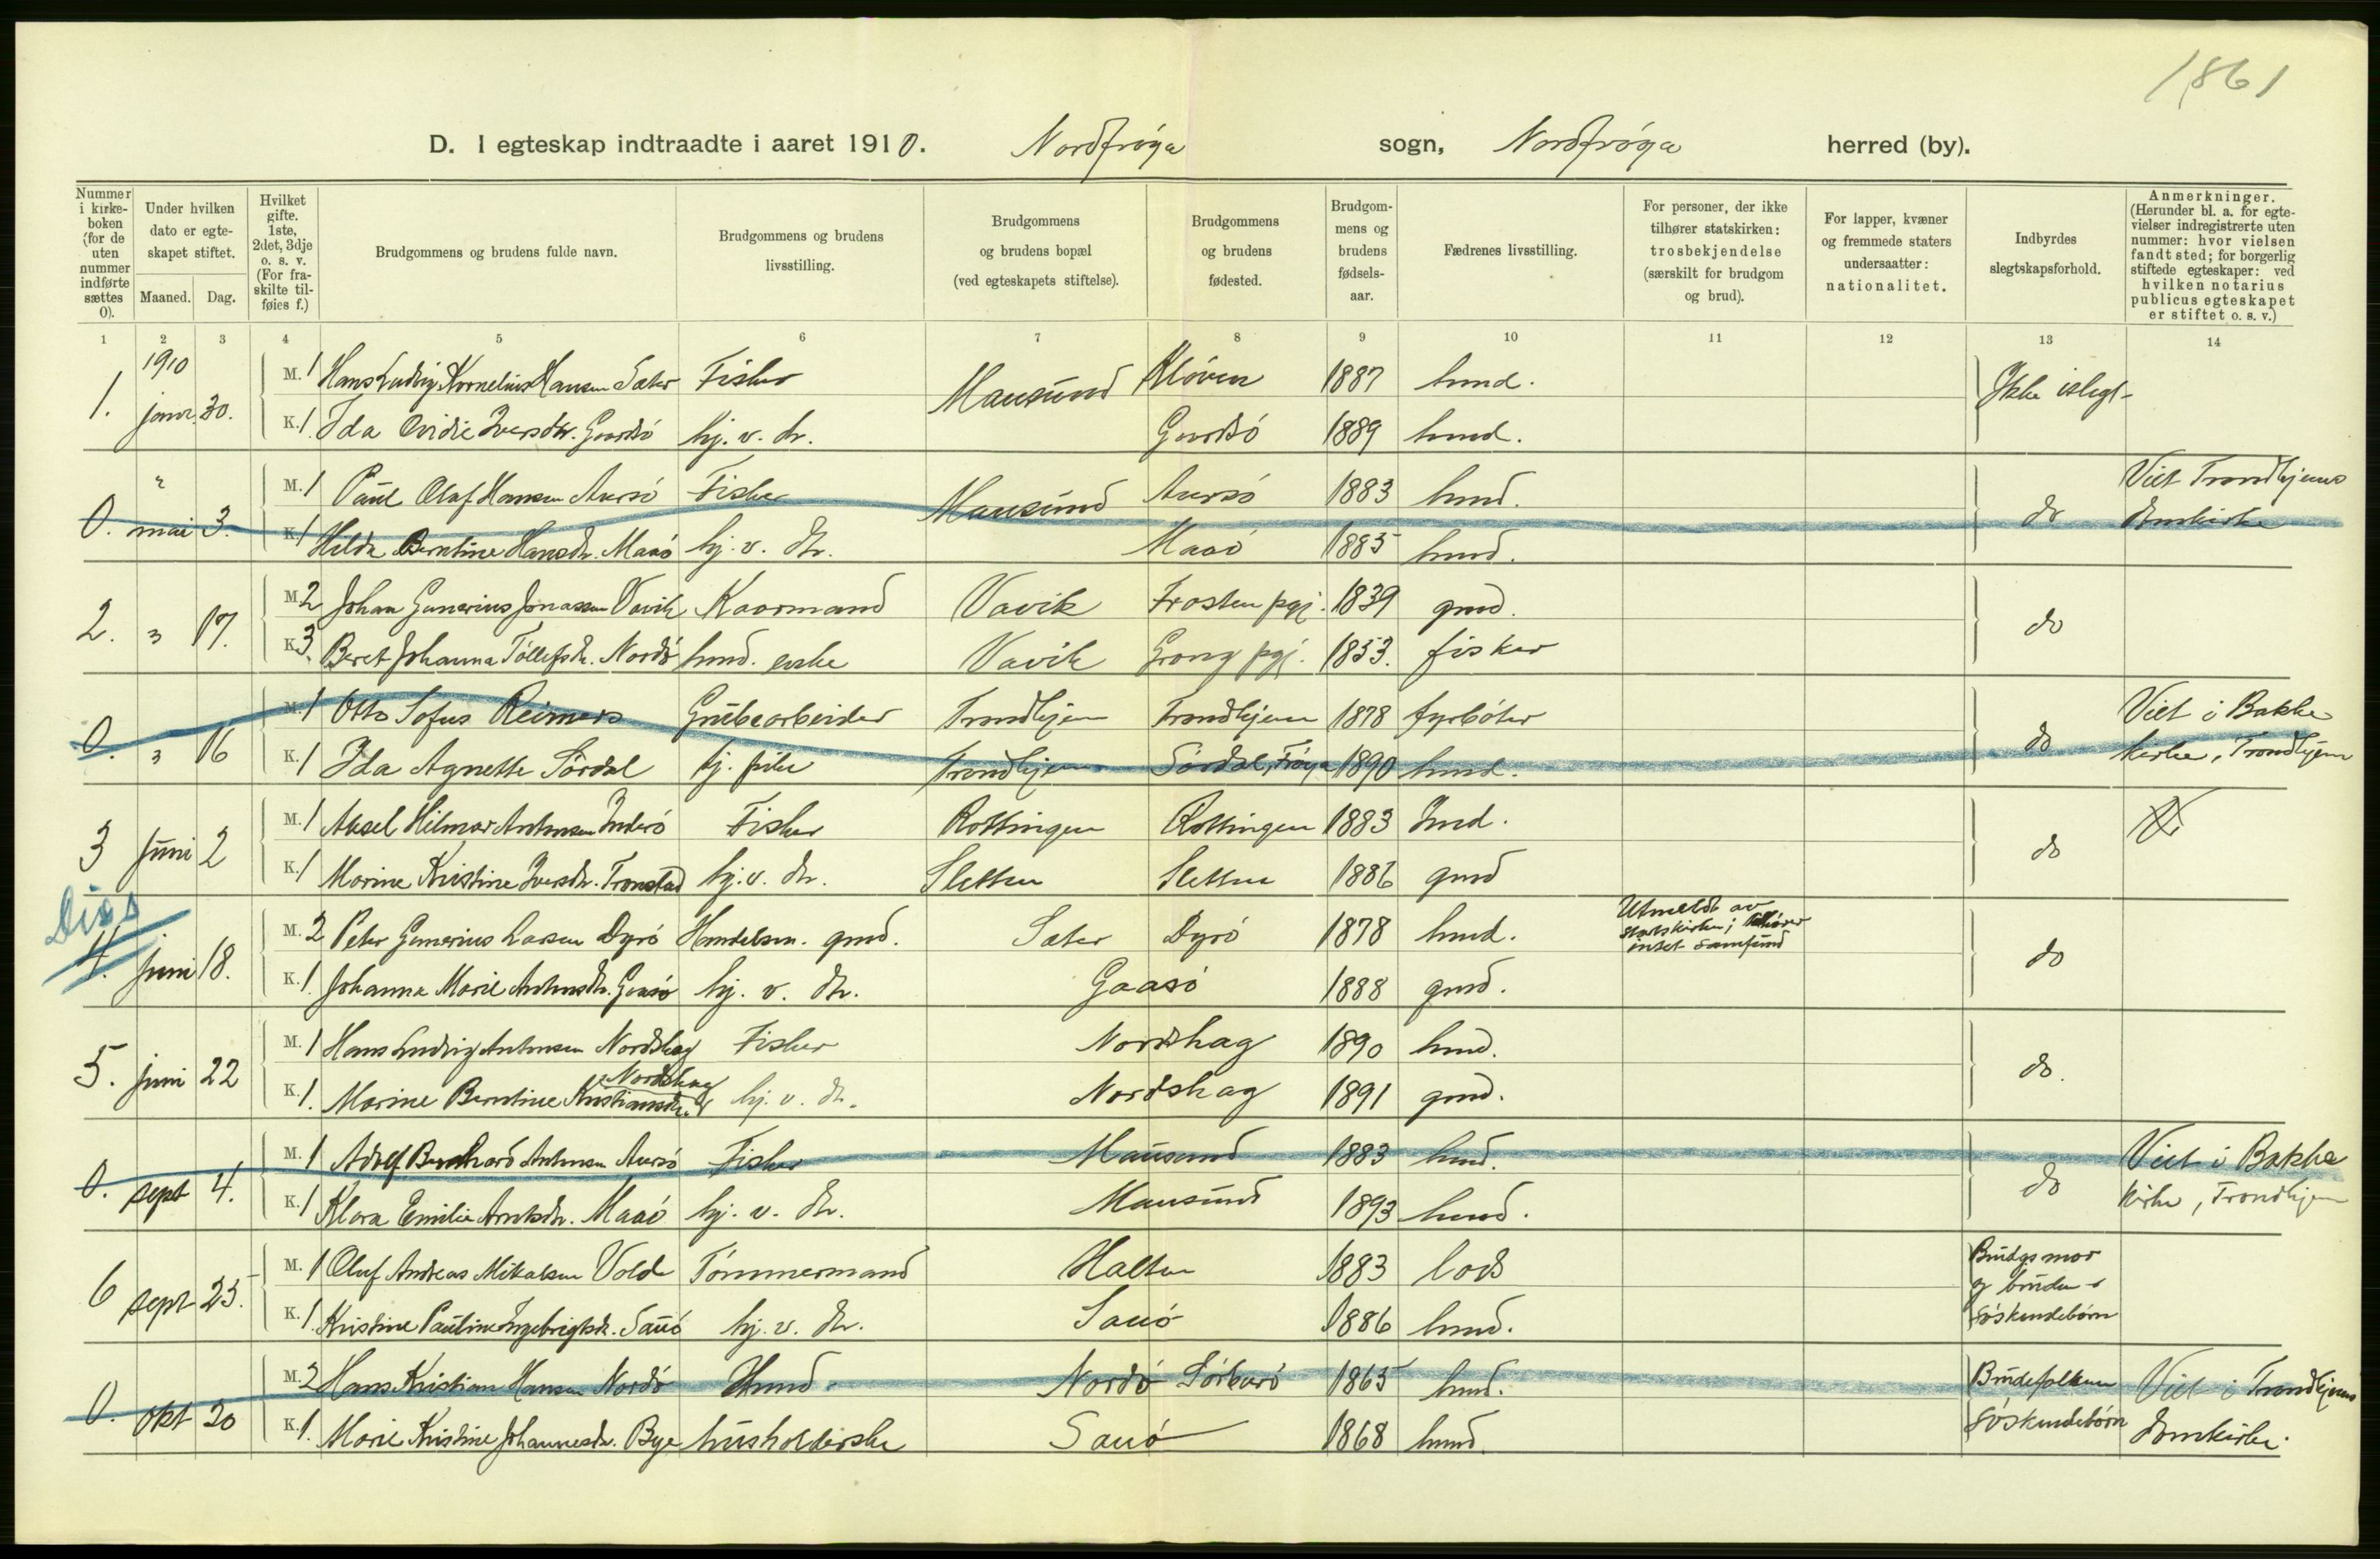 1861
D. I egteskap indtraadte i aaret 1910. Nordfrøya sogn, Nordfrøya herred (by).
Nummer i kirke- boken (for de uten nummer indførte sættes 0).
Under hvilken dato er egte- skapet stiftet.
Maaned. Dag.
Hvilket gifte. 1ste, 2det, 3dje o. s. v. (For fra- skilte til- føies f.)
Brudgommens og brudens fulde navn.
Brudgommens og brudens livsstilling.
Brudgommens og brudens bopæl (ved egteskapets stiftelse).
Brudgommens og brudens fødested.
Brudgom- mens og brudens fødsels- aar.
Fædrenes livsstilling.
For personer, der ikke tilhører statskirken: trosbekjendelse (særskilt for brudgom og brud).
For lapper, kvæner og fremmede staters undersaatter: nationalitet.
Indbyrdes slegtskapsforhold.
Anmerkninger. (Herunder bl. a. for egte- vielser indregistrerte uten nummer: hvor vielsen fandt sted; for borgerlig stiftede egteskaper: ved hvilken notarius publicus egteskapet er stiftet o. s. v.)
1 2 3 4 5 6 7 8 9 10 11 12 13 14
1910
1. janr. 30. M. 1 Hans Ludvig Kornelius Hansen Sæter Fisker Mausund Kløven 1887 hmd. Ikke islegt
K. 1. Ida Ovidie Iversdtr. Gaardsø hj. v. dr. Gaardsø 1889 hmd.
"
0. mai 3. M. 1 Paul Olaf Hansen Aursø Fisker Mausund Aursø 1883 hmd. do Viet Trondhjems
K. 1 Helda Berntine Hansdr. Maaø hj. v. dr. Maaø 1885 hmd. domkirke
2. " 17. M. 2 Johan Gunerius Jonassen Vavik Kaarmand Vavik Frosten pgj. 1839 gmd. do
K. 3. Beret Johanna Tollefsdr. Nordø hmd. enke Vavik Grong pgj. 1853. fisker
0. " 16 M. 1 Otto Sofus Reimers Grubearbeider Trondhjem Trondhjem 1878 fyrbøter do Viet i Bakke
K. 1 Ida Agnette Sørdal tj. pike Trondhjem Sørdal, Frøya 1890 hmd. kirke, Trondhjem
3 Juni 2 M. 1 Aksel Hilmar Antonsen Inderø Fisker Rottingen Rottingen 1883 Hmd. do
K. 1 Marine Kristine Iversdr. Fronstad hj. v. dr. Sletten Sletten 1886 gmd
Diss
4. juni 18. M. 2 Peter Gunerius Larsen Dyrø Handelsm. gmd. Sæter Dyrø 1878 hmd. Utmeldt av statskirken; tilhører intet samfund do
K. 1. Johanna Marie Antonsdr. Gaasø hj. v. dr. Gaasø 1888 gmd.
5. juni 22 M. 1 Hans Ludvig Antonsen Nordskag Fisker Nordskag 1890 hmd. do.
K. 1. Marine Berntine Kristiansdr. Nordskag hj. v. dr. Nordskag 1891 gmd.
0. sept 4. M. 1 Adolf Bernhard Antonsen Aursø Fisker Mausund 1883 hmd. do Viet i Bakke
K. 1 Klara Emilie Arntsdr. Maaø hj. v. dr. Mausund 1893 hmd. kirke, Trondhjem
6 sept 25. M. 1 Oluf Andreas Mikalsen Volde Tømmermand Halten 1883 lods Brudgs mor og bruden søskendebørn
K. 1. Kristine Pauline Ingebrigtsdr. Sauø hj. v. dr. Sauø 1886 hmd.
0. okt 20 M. 2 Hans Kristian Hansen Nordø Hmd. Nordø Sørburø 1865 hmd. Brudefolkene søskendebørn Viet i Trondhjems
K. 1. Marie Kristine Johannesdr. Bye husholderske Sauø 1868 hmd. domkirke.